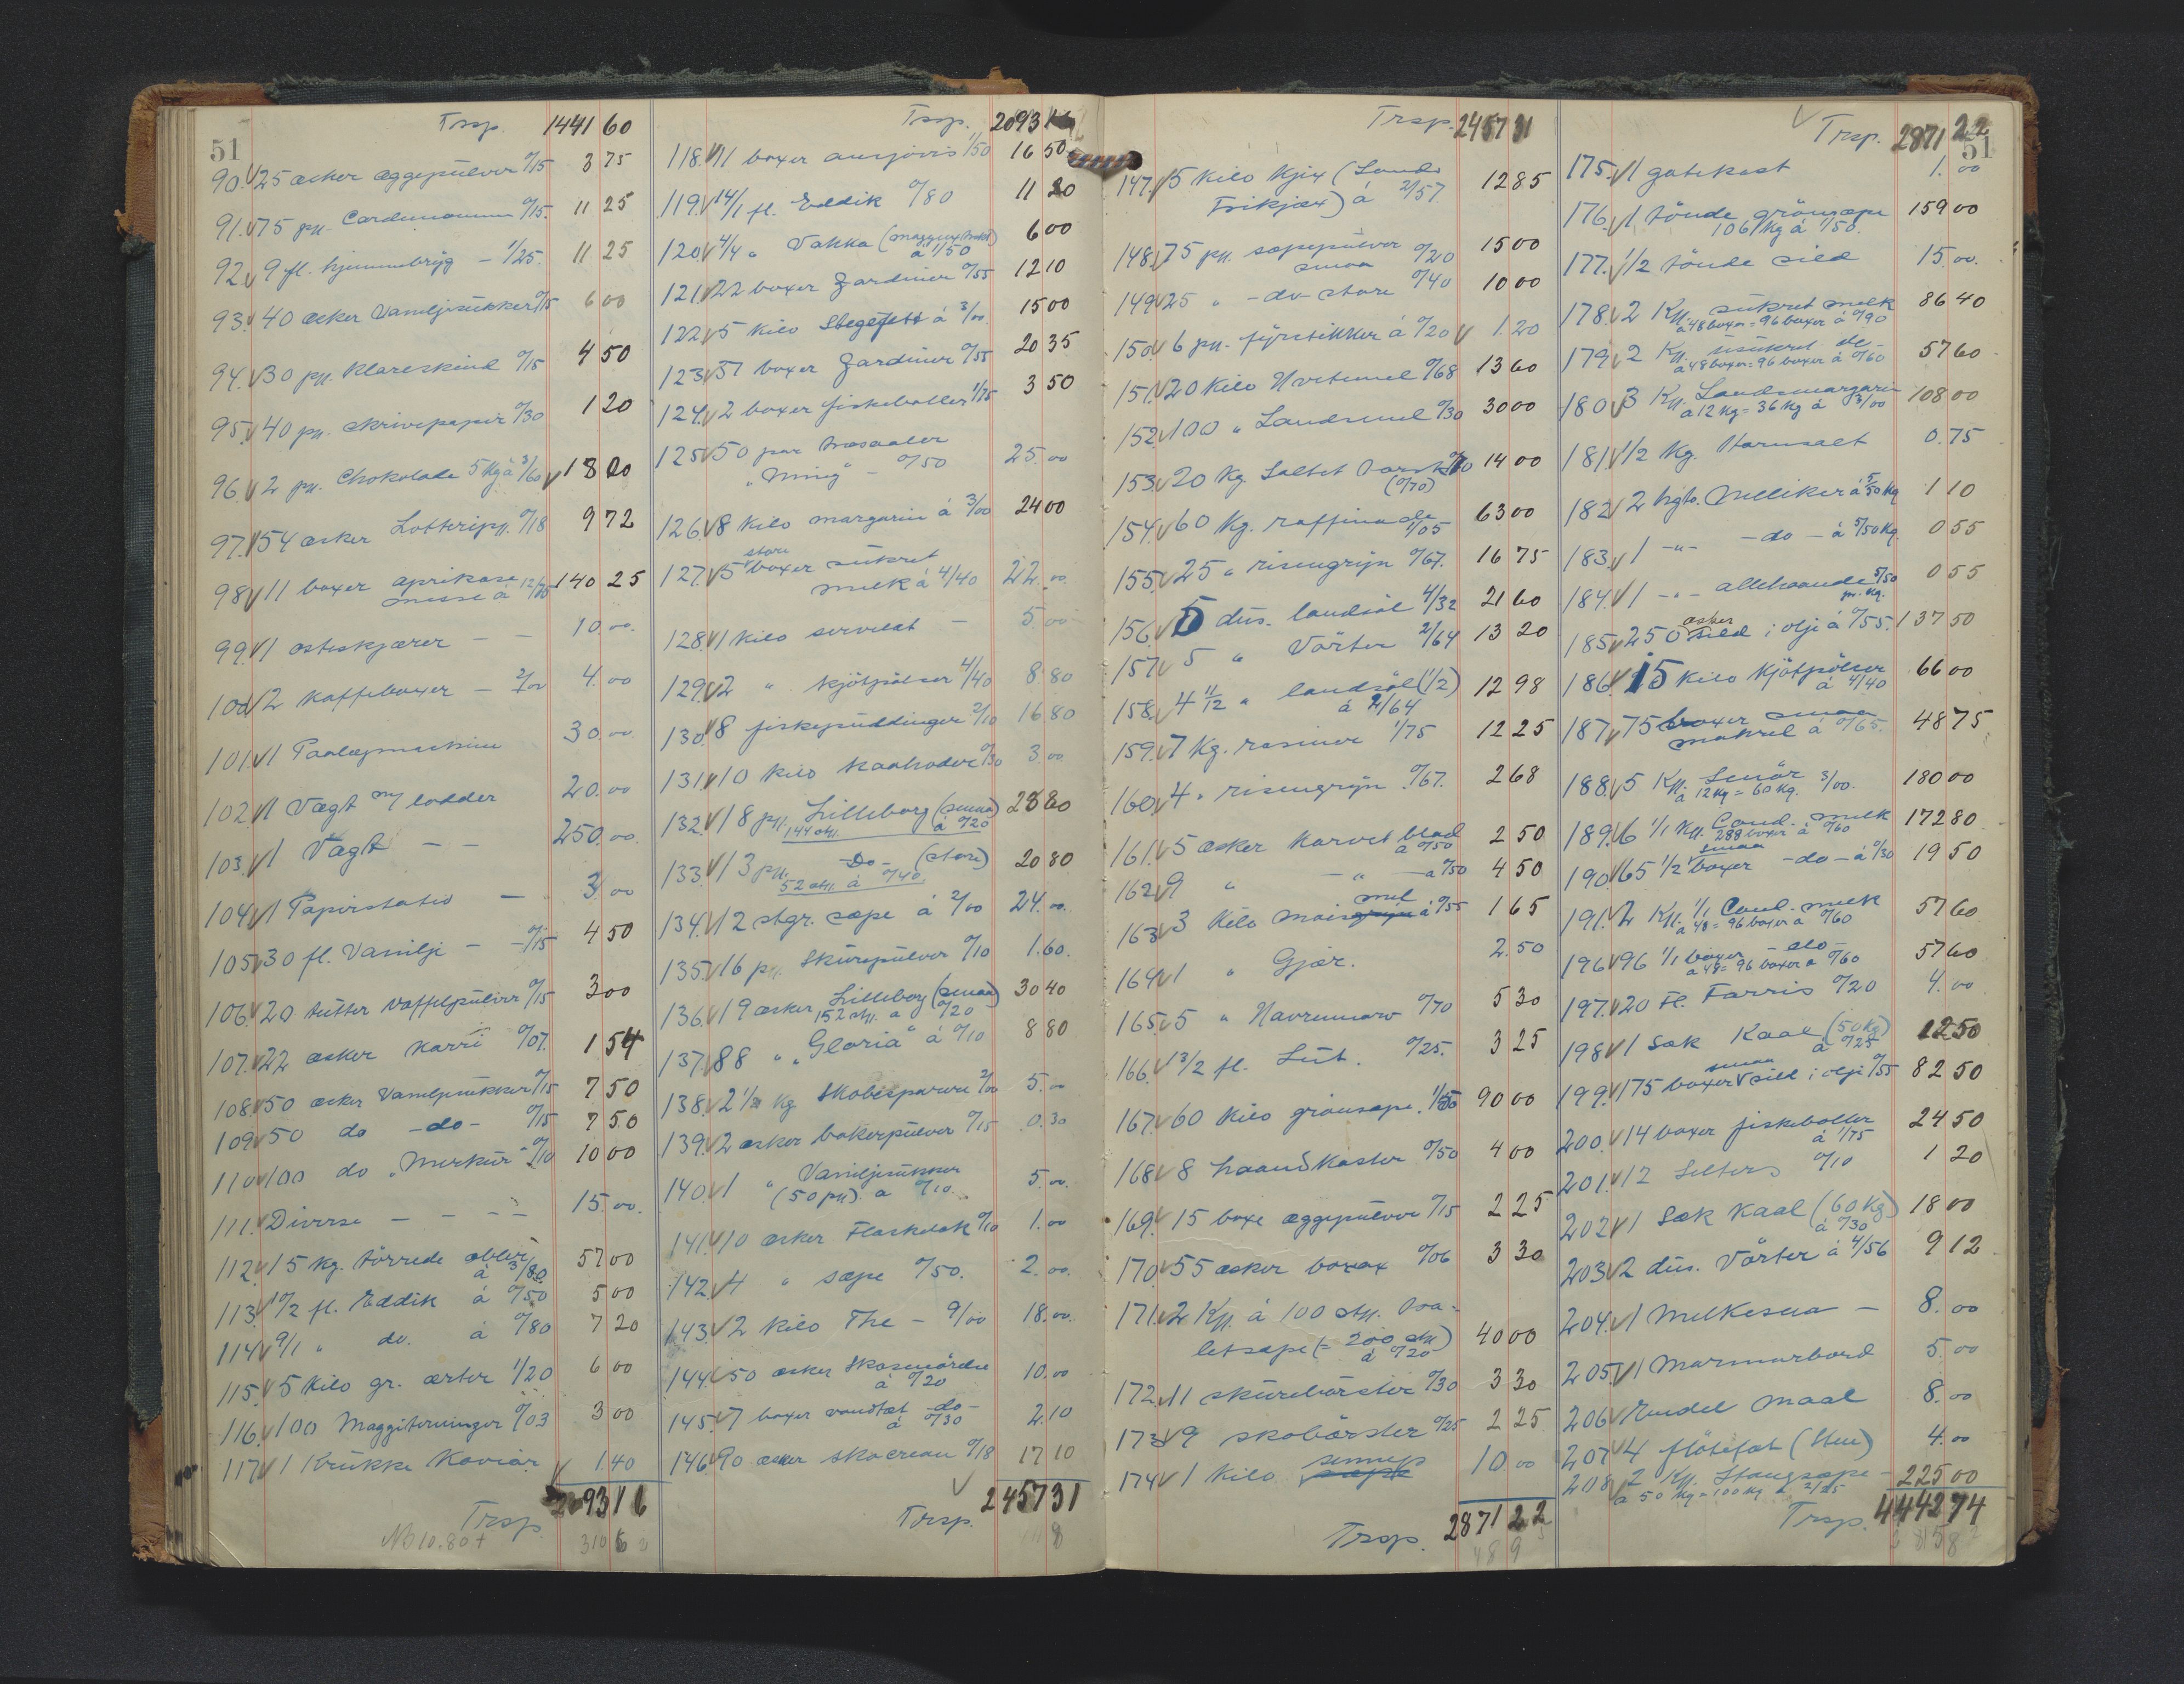 51
Trsp. 1441 60
90. 25 æsker æggepülver 0/15 3 75
91. 75 pk. Cardemomme 0/15. 11 25
92. 9 fl. hjemmebryg - 1/25. 11 25
93. 40 æsker Vaniljesükker 0/15 6 00
94. 30 pk. Klareskind 0/15 4 50
95. 40 pk. skrivepapir 0/30 1 20
96. 2 pk. Chokolade 5 Kg à 3/60 18 00
97. 54 æsker Lotteripk. 0/18 9 72
98. 11 boxer aprikose
messe à 12/75 140 25
99. 1 osteskjærer - - 10.00.
100. 2 Kaffeboxer - 2/00 4.00
101. 1 Paalægmaskine 30.00.
102. 1 Vægt m/ lodder 20.00
103. 1 Vægt - - 250.00.
104. 1 Papirstativ - 3.00
105. 30 fl. Vanilje - - 0/15 4 50
106. 20 tütter vaffelpülver 0/15 3 00
107. 22 æsker Karri 0/07. 1 54
108. 50 æsker Vaniljesükker 0/15 7 50
109. 50 do -do- 0/15 7 50
110. 100 do „Merkür" 0/10 10 00
111. Diverse - - - - 15.00.
112. 15 kg. tørrede æbler
à 3/80. 57 00
113. 10/2 fl. Eddik à 0/50 5 00
114. 9/1 " do. à 0/80 7 20
115. 5 Kilo gr. ærter 1/20 6 00
116. 100 Maggiterninger 0/03 3 00
117. 1 Krükke Kaviar. 1.40
Trsp. 2093 16
No 10.80+
Trsp. 2093 16
118. 11 boxer ansjovis 1/50 16 50
119. 14/1 fl. Eddik 0/80 11 20
120. 4/4 " Vakka
à 1/50 6 00
121. 22 boxer Sardiner 0/55 12 10
122. 5 Kilo Stegefett à 3/00. 15 00
123. 37 boxer Sardiner 0/55 20 35
124. 2 boxer fiskeboller 1/75 3 50
125. 50 par træsaaler
"Ming" - 0/50 25.00
126. 8 Kilo margarin à 3/00 24 00
127. 5 store boxer sükret
melk à 4/40 22.00
128. 1 Kilo servelat - 5.00
129. 2 " kjötpölser 4/40 8.80
130. 8 fiskepüddinger 2/10 16.80
131. 10 Kilo Kaalroder 0/30 3.00
132. 18 pk. Lilleborg (smaa)
144 stk. à 0/20 28 80
133. 13 pk. -Do- (store)
52 stk. à 0/40. 20 80
134. 12 stgr. sæpe à 2/00 24.00.
135. 16 pk. Skürepülver 0/10 1.60.
136. 19 æsker Lilleborg (smaa)
152 stk. a 0/20 30 40
137. 88 " „Gloria" à 0/10 8 80
138. 2 1/2 Kg Skobesparere 2/00 5.00
139. 2 æsker bakerpülver 0/15 0.30
140. 1 " Vaniljesükker
(50 pk). a 0/10. 5.00.
141. 10 æsker Flaskelak 0/10 1.00
142. 4 " sæpe 0/50. 2.00.
143. 2 Kilo The - 9/00 18.00.
144. 50 æsker Skosmörelse
à 0/20 10.00
145. 7 boxer vandtæt -do-
à 0/30 2.10
146. 90 æsker skocreau 0/18 17 10
Trsp. 2457 31
Trsp. 2457 31
147. 5 Kilo Kjix (Lands
Frikjæx) à 2/57. 12 85
148. 75 pk. sæpepülver
smaa 0/20 15 00
149. 25 " -do- store 0/40 10 00
150. 6 pk. fyrstikker à 0/20 1.20
151. 20 Kilo Hvetemel 0/68 13 60
152. 100 " Landsmel 0/30 30 00
153. 20 Kg. Saltet torsk 0/70
(0/70) 14 00
154. 60 Kg. raffinade
1/05 63 00
155. 25 " risengryn 0/67. 16 75
156. 5 düs. landsöl 4/32 21 60
157. 5 " Vörter 2/64 13 20
158. 4 11/12 " landsöl (1/2)
à 2/64 12 98
159. 7 Kg. rosiner 1/75 12 25
160. 4 " risengryn 0/67. 2 68
161. 5 æsker Karvet blad
a 0/50 2 50
162. 9 " - " - a 0/50 4 50
163. 3 Kilo maisgryn mel à 0/55 1 65
164. 1 " Gjær. 2.50
165. 5 " Havremow 0/70 5 30
166. 13/2 fl. Lüt. 0/25. 3 25
167. 60 Kilo grönsæpe. 1/50 90 00
168. 8 haandkoster 0/50 4 00
169. 15 boxe æggepülver 0/15 2 25
170. 55 æsker borax 0/06 3 30
171. 2 Kk. à 100 stk. toa-
letsæpe (= 200 stk)
à 0/20 40 00
172. 11 skürebörster 0/30 3 30
173. 9 skobörster 0/25 2 25
174. 1 Kilo sæpe sennep 10.00
Trsp. 2871 22
51
Trsp. 2871 22
175. 1 gatekost 1.00
176. 1 tönde grönsæpe
106 Kg à 1/50. 159 00
177. 1/2 tönde sild 15.00.
178. 2 Kk. sükret melk
a 48 boxer = 96 boxer à 0/90 86 40
179. 2 Kk. usükret do-
a 48 boxer = 96 boxer à 0/60 57 60
180. 3 Kk. Landsmargarin
a 12 Kg = 36 Kg à 3/00 108 00
181. 1/2 Kg. Hornsalt 0.75
182. 2 hgto. Nelliker à 5/50 Kg 1 10
183. 1 -"- -do- à 5/50 Kg. 0 55
184. 1 -"- allehaande 5/50
pr. Kg. 0 55
185. 250 æsker sild i olje à 0/55. 137 50
186. 15 Kilo Kjötpölser
à 4/40 66 00
187. 75 boxer smaa
makrel à 0/65. 48 75
188. 5 Kk. Smör
a 12 Kg = 60 Kg. 3/00. 180 00
189. 6 1/1 Kk. Cond. melk
288 boxer à 0/60 172 80
190. 65 1/2 smaa boxer -do- à 0/30 19 50
191. 2 Kk. 1/1 Cond. melk
a 48 = 96 boxer a 0/60 57 60
196. 96 1/1 boxer -do-
a 48 = 96 boxer a 0/60 57 60
197. 20 Fl. Farris 0/20 4.00
198. 1 Sæk Kaal (50 Kg)
à 0/25 12 50
199. 175 boxer smaa sild i olje 0/55 82 50
200. 14 boxer fiskeboller
à 1/75 24 50
201. 12 Selters 0/10 1 20
202. 1 Sæk Kaal (60 Kg)
à 0/30 18 00
203. 2 düs. Vörter à 4/56 9 12
204. 1 Melkesua - 8.00
205. 1 Marmorbord 5.00
206. Endel maal 8.00
207. 4 flötefat (Sten) 4.00
208. 2 Kk. Stangsæpe -
à 50 Kg = 100 Kg à 2/25 225 00
Trsp. 4442 74